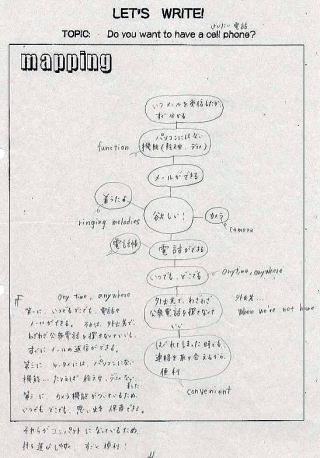 LET'S WRITE!
けいたい電話
TOPIC: Do you want to have a cell phone?
mapping
いつメールを受信したか
すぐ分かる
パソコンにはない
機能(絵文字、デコメ)
function
メールができる
着うた
ringing melodies
欲しい!
カメラ
camera
電話帳
電話ができる
いつでも、どこでも
anytime, anywhere
外出先で、わざわざ
公衆電話を探さなくて
いい
外出先…
When we're not home
はぐれてしまった時でも
連絡を取り合えるから
便利
convenient
any time, anywhere
第一に、いつでもどこでも、電話や
メールができる。
わざわざ公衆電話を探さなくていいし、
すぐにメールの返信ができる。
第二に、ケータイには、パソコンにない
機能
第三に、カメラ機能がついているため、
いつでもどこでも、思い出を保存できる。
それらがコンパクトになっているため、
持ち運びしやすく、すごく便利!